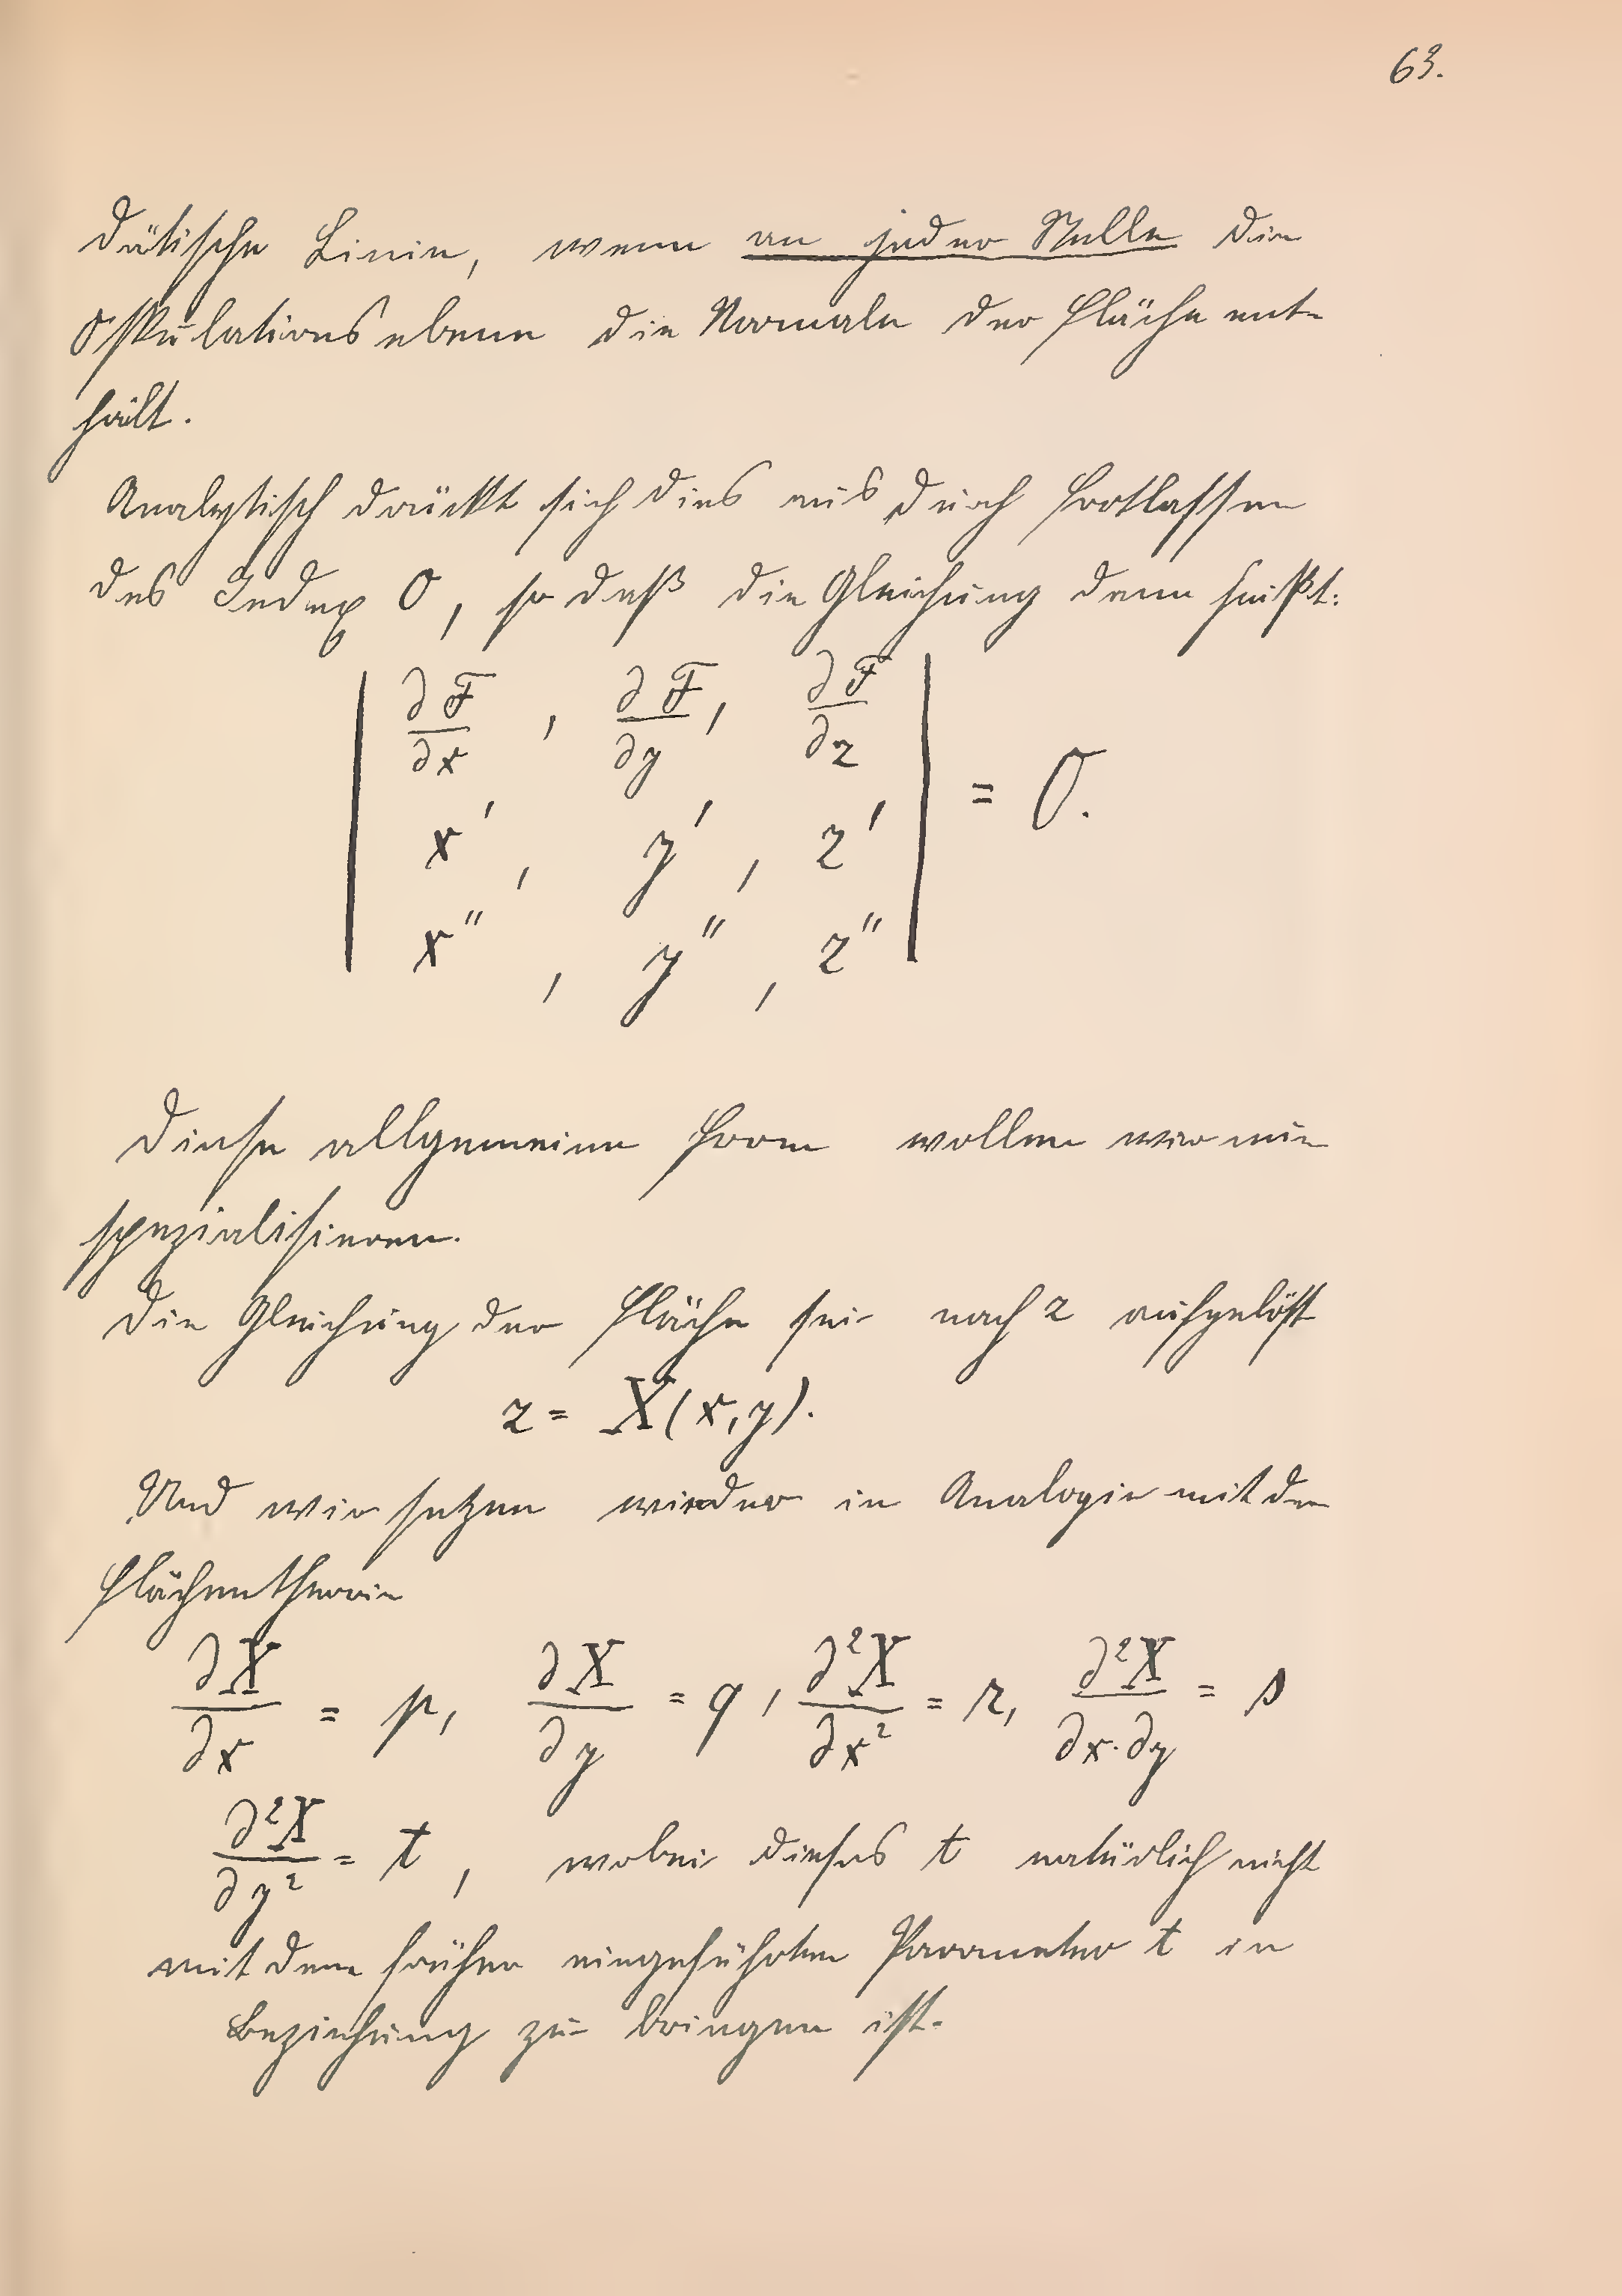 63.
dätische Linie, wenn an jeder Stelle die
Oskulationsebene die Normale der Fläche ent-
hält.
Analytisch drückt sich dies aus durch Fortlassen
des Index 0, so daß die Gleichung dann heißt:
| ∂F/∂x , ∂F/∂y , ∂F/∂z |
| x' , y' , z' | = 0.
| x'' , y'' , z'' |
Diese allgemeine Form wollen wir nun
spezialisieren.
Die Gleichung der Fläche sei nach z aufgelöst
z = X(x,y).
Und wir setzen wieder in Analogie mit der
Flächentheorie
∂X/∂x = p, ∂X/∂y = q, ∂²X/∂x² = r, ∂²X/∂x·∂y = s
∂²X/∂y² = t, wobei dieses t natürlich nicht
mit dem früher eingeführten Parameter t in
Beziehung zu bringen ist.